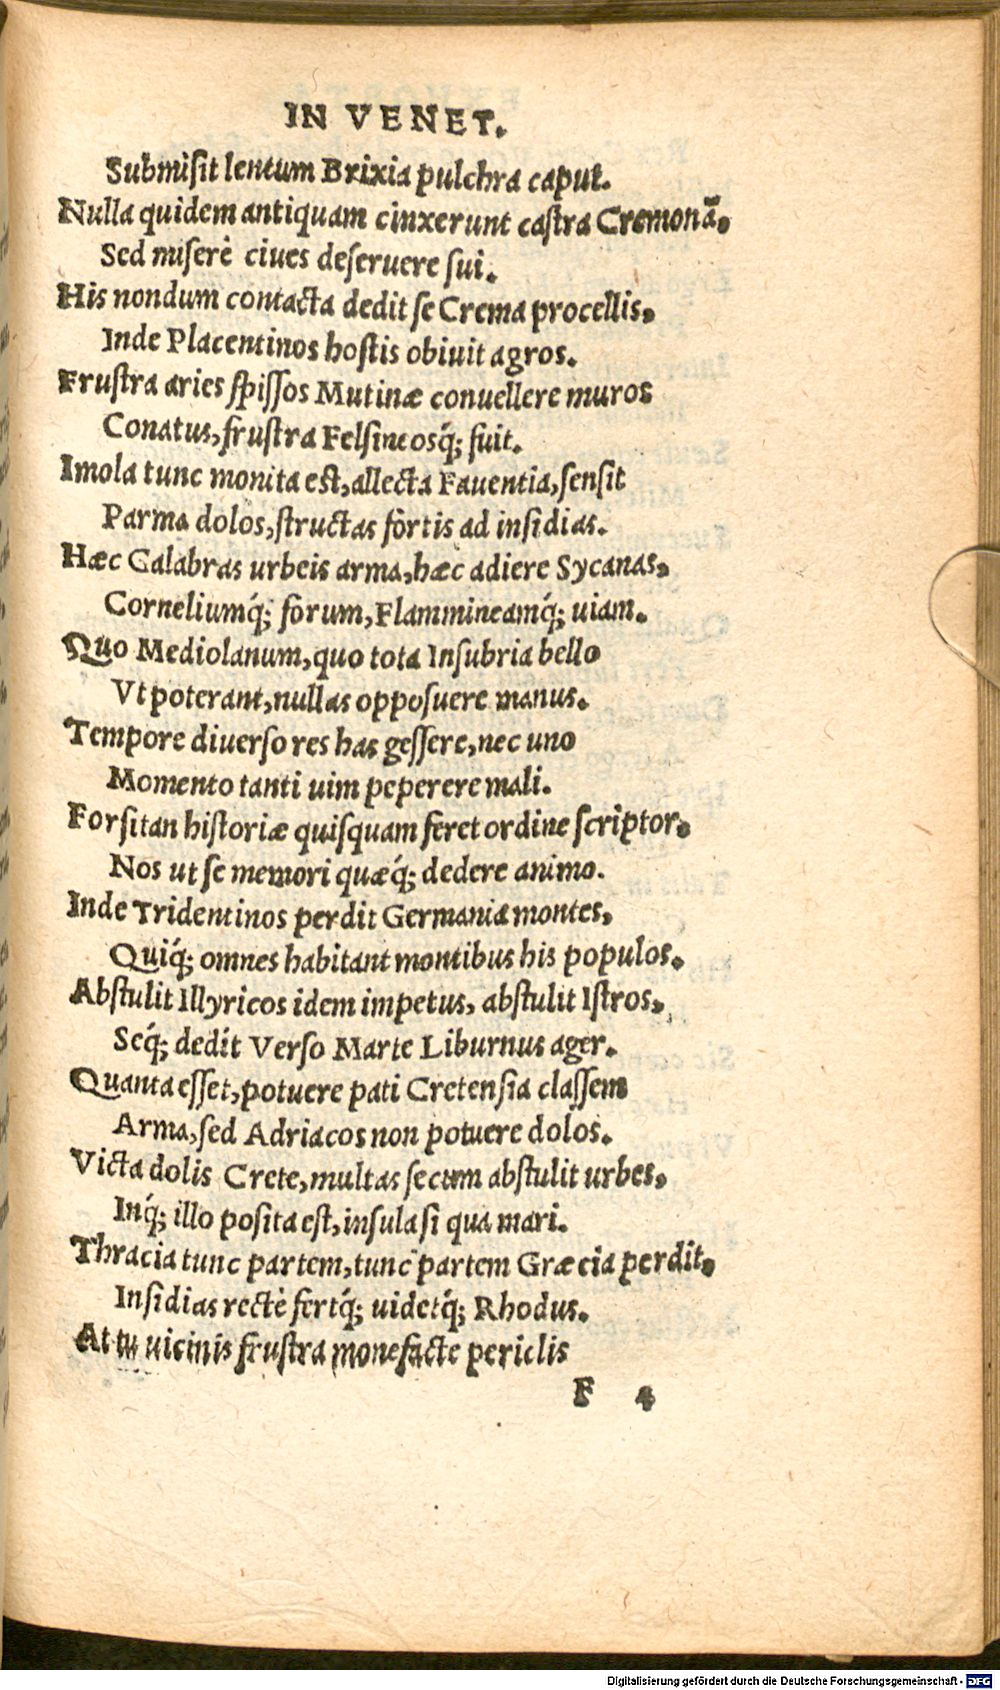 IN VENET.
Submisit lentum Brixia pulchra caput.
Nulla quidem antiquam cinxerunt castra Cremonā,
Sed miserè ciues deseruere sui.
His nondum contacta dedit se Crema procellis,
Inde Placentinos hostis obiuit agros.
Frustra aries spissos Mutinæ conuellere muros
Conatus, frustra Felsineosq́; fuit.
Imola tunc monita est, allecta Fauentia, sensit
Parma dolos, structas fortis ad insidias.
Hæc Calabras urbeis arma, hæc adiere Sycanas,
Corneliumq́; forum, Flammineamq́; uiam.
Quo Mediolanum, quo tota Insubria bello
Vt poterant, nullas opposuere manus.
Tempore diuerso res has gessere, nec uno
Momento tanti uim peperere mali.
Forsitan historiæ quisquam feret ordine scriptor,
Nos ut se memori quæq́; dedere animo.
Inde Tridentinos perdit Germania montes,
Quiq́; omnes habitant montibus his populos.
Abstulit Illyricos idem impetus, abstulit Istros,
Seq́; dedit Verso Marte Liburnus ager.
Quanta esset, potuere pati Cretensia classem
Arma, sed Adriacos non potuere dolos.
Victa dolis Crete, multas secum abstulit urbes,
Inq́; illo posita est, insula si qua mari.
Thracia tunc partem, tunc partem Græcia perdit,
Insidias rectè fertq́; uidetq́; Rhodus.
At tu uicinis frustra monefacte periclis
F 4
Digitalisierung gefördert durch die Deutsche Forschungsgemeinschaft - DFG